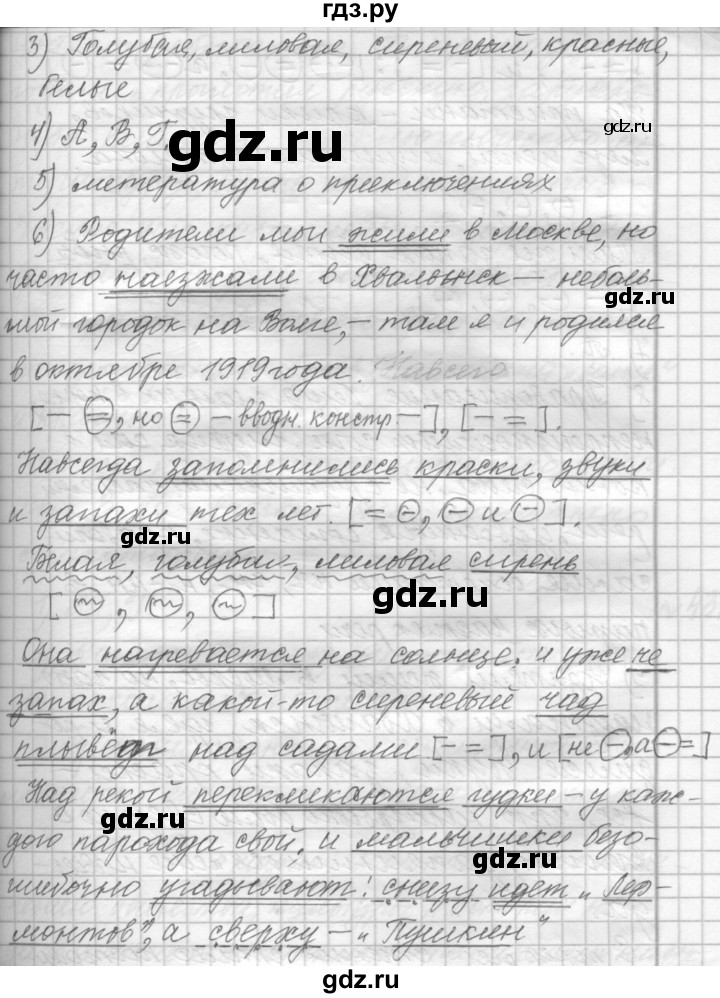 гдз.ру
3) Голубая, лиловая, сиреневый, красные,
белые
4) А, В, Г.
5) метература о приключениях
6) Родители мои жили в Москве, но
часто наезжали в Хвалынск – неболь-
шой городок на Волге, – там я и родился
в октябре 1919 года. Навсего
[– =, но = – вводн. констр. –], [– =].
Навсегда запомнились краски, звуки
и запахи тех лет. [= –, – и –].
Белая, голубая, лиловая сирень
[~, ~, ~]
Она нагревается на солнце, и уже не
запах, а какой-то сиреневый чад
плывёт над садами [– =], и [не –, а – =]
Над рекой перекликаются гудки – у каж-
дого парохода свой, и мальчишки безо-
шибочно угадывают: снизу идет „Лер-
монтов", а сверху – „Пушкин"
gdz.ru
gdz.ru
gdz.ru
gdz.ru
gdz.ru
gdz.ru
gdz.ru
gdz.ru
gdz.ru
гдз.ру